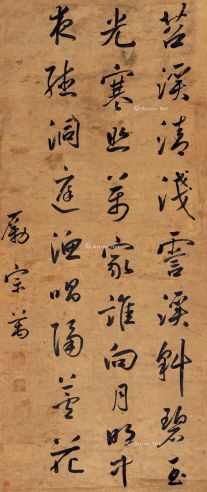 苕溪清淺霅溪斜碧玉
光寒照萬家誰向月明中
夜聽洞庭漁唱隔蘆花
勵宗萬